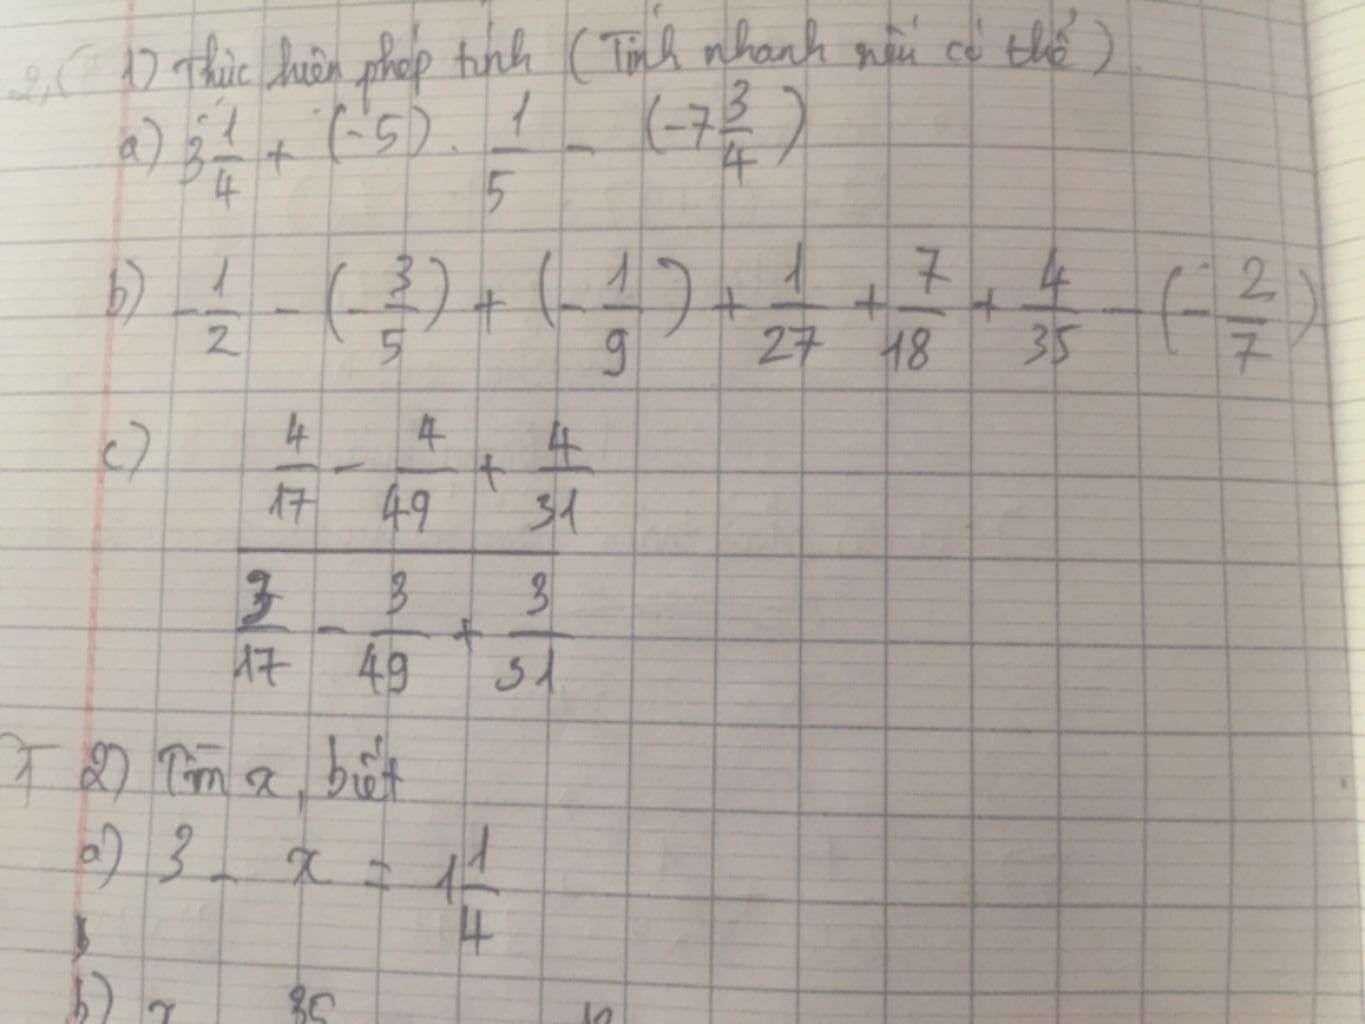 1) Thực hiện phép tính (Tính nhanh nếu có thể)
a) 3 1/4 + (-5) . 1/5 - (-7 3/4)
b) -1/2 - (-3/5) + (-1/9) + 1/27 + 7/18 + 4/35 - (-2/7)
c) (4/17 - 4/49 + 4/31) / (3/17 - 3/49 + 3/31)
2) Tìm x, biết
a) 3 - x = 1 1/4
b) x